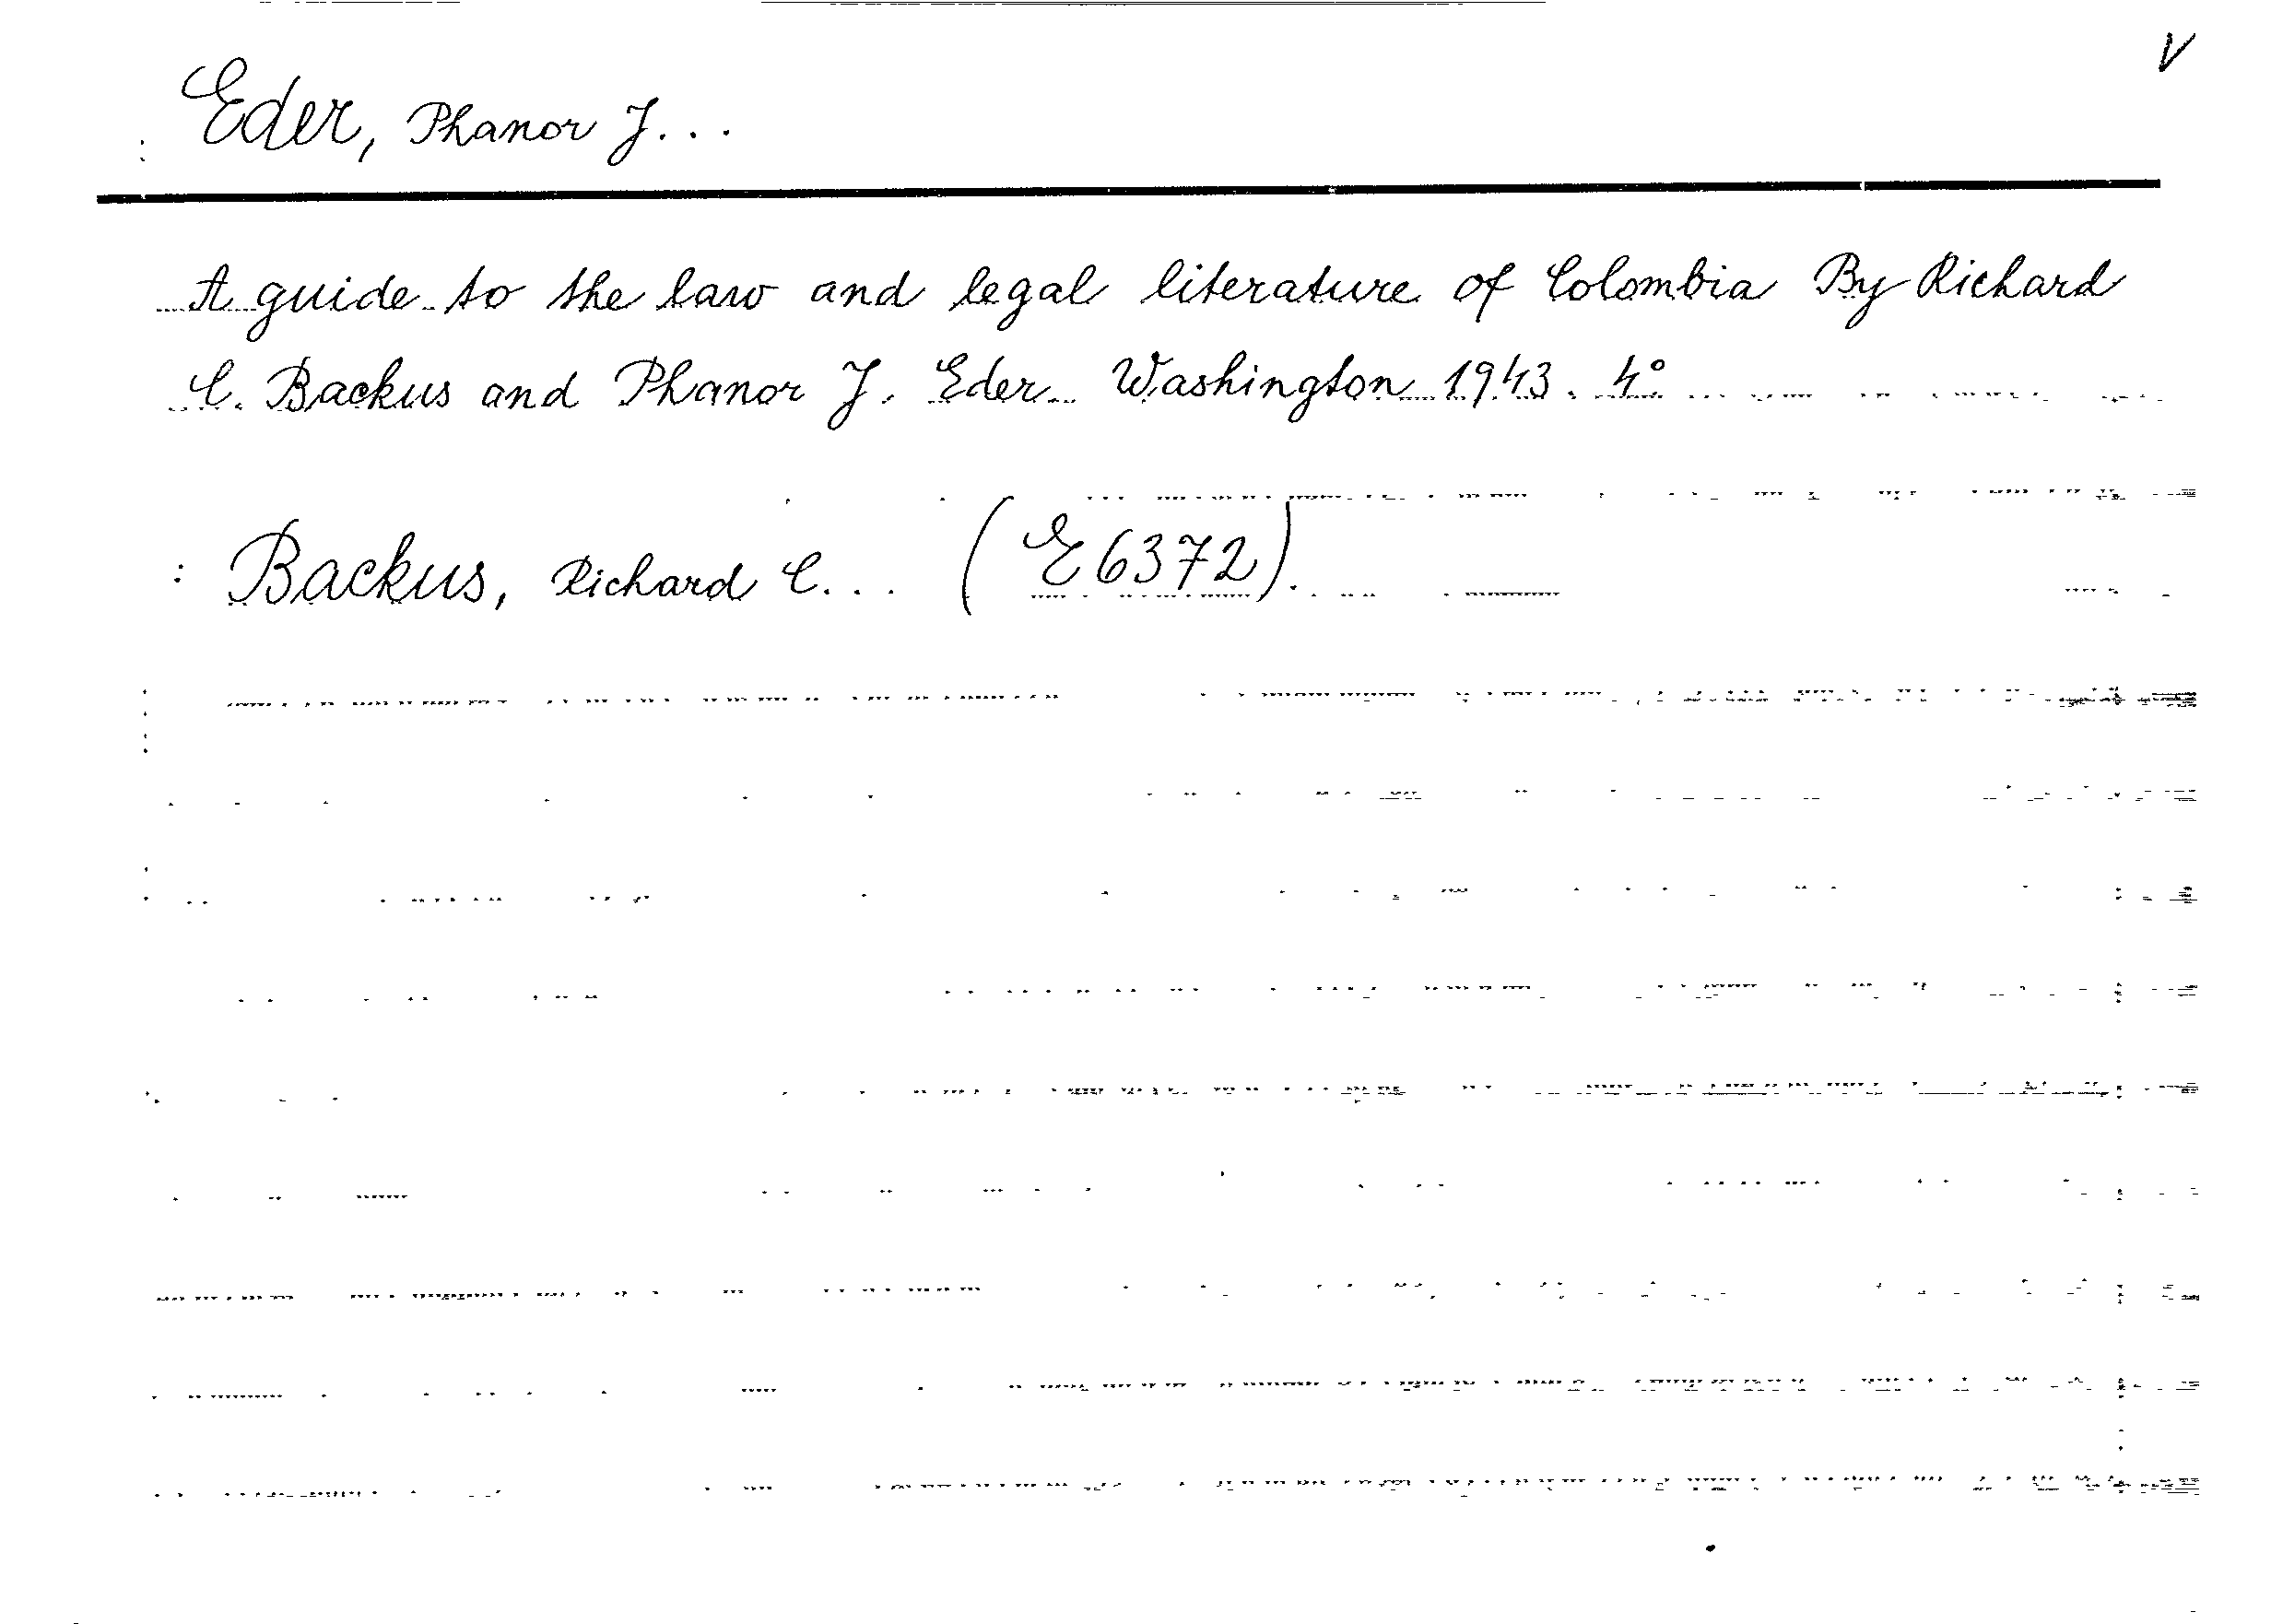 V
Eder, Phanor J...
A guide to the law and legal literature of Colombia By Richard
C. Backus and Phanor J. Eder Washington 1943. 4°
: Backus, Richard C... (E6372).